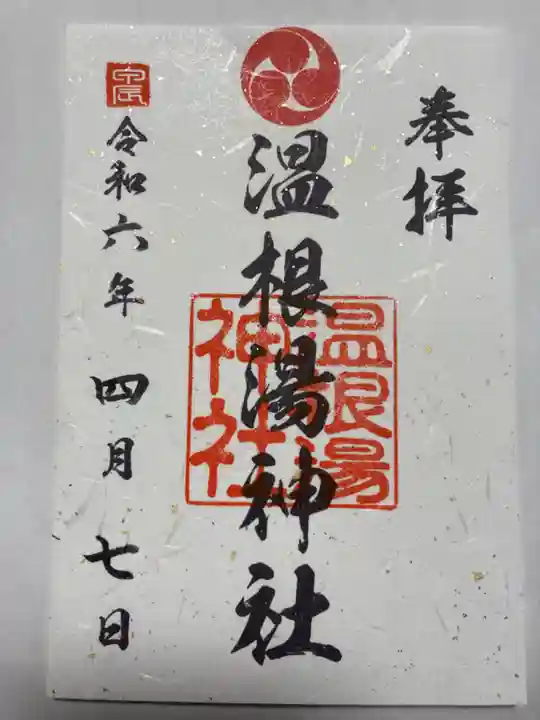 奉拝
温根湯神社
温根湯
神社
甲辰
令和六年 四月 七日